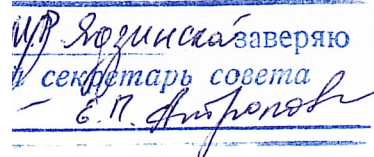 Ядзинска заверяю
секретарь совета
Е. П. Антропов